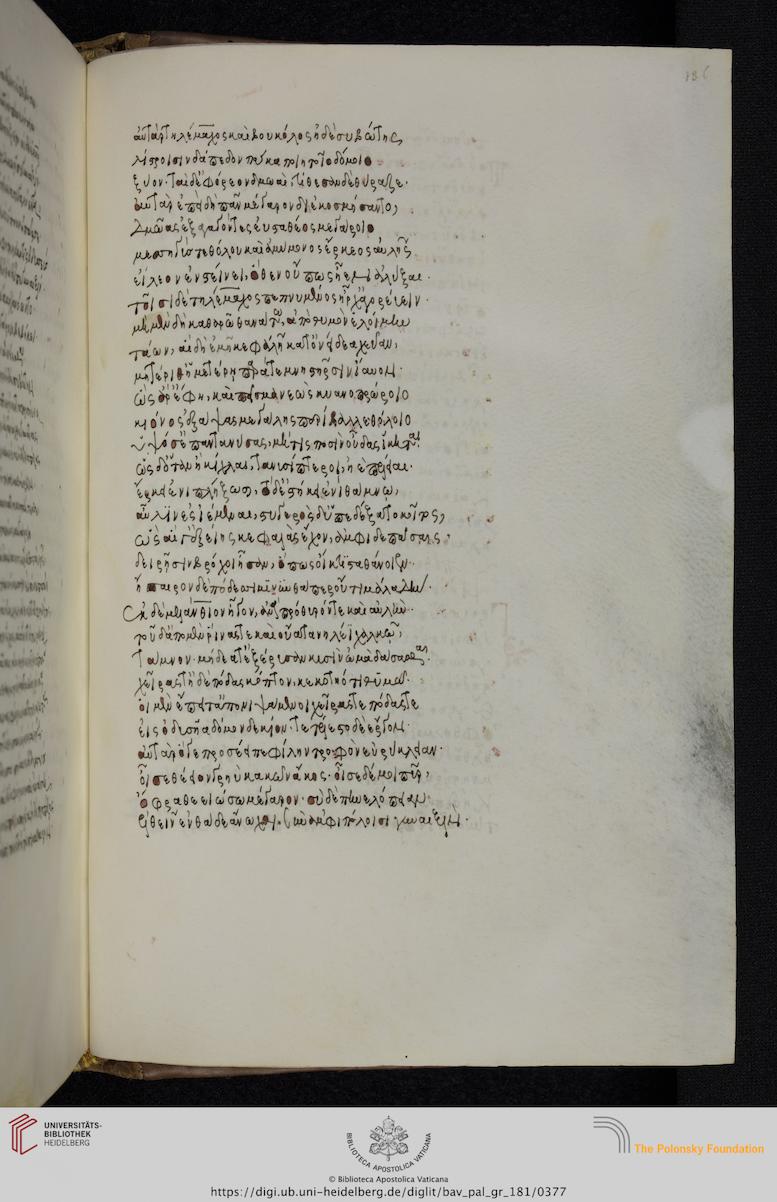 186
αὐτὰρ τηλέμαχος καὶ βουκόλος ἠδὲ συβώτης
λίστροισιν δάπεδον πύκα ποιητοῖο δόμοιο
ξύον· ταὶ δ' ἐφόρεον δμωαὶ, τίθεσαν δὲ θύραζε·
αὐτὰρ ἐπειδὴ πᾶν μέγαρον διεκοσμήσαντο,
δμωὰς ἐξαγαγόντες ἐυσταθέος μεγάροιο
μεσσηγύς τε θόλου καὶ ἀμύμονος ἕρκεος αὐλῆς
εἴλεον ἐν στείνει, ὅθεν οὔ πως ἦεν ἀλύξαι·
τοῖσι δὲ τηλέμαχος πεπνυμένος ἦρχ' ἀγορεύειν·
μὴ μὲν δὴ καθαρῷ θανάτῳ, ἀπὸ θυμὸν ἑλοίμην
τάων, αἳ δὴ ἐμῇ κεφαλῇ κατ' ὀνείδεα χεῦαν,
μητέρι θ' ἡμετέρῃ παρά τε μνηστῆρσιν ἴαυον·
ὣς ἄρ' ἔφη, καὶ πεῖσμα νεὼς κυανοπρώροιο
κίονος ἐξάψας μεγάλης περίβαλλε θόλοιο
ὑψόσ' ἐπαντανύσας, μή τις ποσὶν οὖδας ἵκηται·
ὡς δ' ὅταν ἢ κίχλαι, τανυσίπτεροι, ἠὲ πέλειαι·
ἕρκει ἐνιπλήξωσι, τό θ' ἑστήκει ἐνὶ θάμνῳ,
αὖλιν ἐσιέμεναι, στυγερὸς δ' ὑπεδέξατο κοῖτος,
ὣς αἵ γ' ἑξείης κεφαλὰς ἔχον, ἀμφὶ δὲ πάσαις,
δειρῆσιν βρόχοι ἦσαν, ὅπως οἴκτιστα θάνοιεν·
ἤσπαιρον δὲ πόδεσσι μίνυνθα περ οὔτι μάλα δήν·
ἐκ δὲ μελάνθιον ἦγον, ἀνὰ πρόθυρόν τε καὶ αὐλήν·
τοῦ δ' ἀπὸ μὲν ῥῖνάς τε καὶ οὔατα νηλέϊ χαλκῷ,
τάμνον· μήδεα τ' ἐξέρυσαν κυσὶν ὠμὰ δάσασθαι·
χεῖράς τ' ἠδὲ πόδας κόπτον, κεκοτηότι θυμῷ·
οἱ μὲν ἔπειτ' ἀπονιψάμενοι χεῖράς τε πόδας τε
εἰς ὀδυσῆα δόμονδε κίον· τετέλεστο δὲ ἔργον·
αὐτὰρ ὅγε προσέειπε φίλην τροφὸν εὐρύκλειαν·
οἶσε θέειον γρηὺ κακῶν ἄκος· οἶσε δέ μοι πῦρ,
ὄφρα θεειώσω μέγαρον· σὺ δὲ πηνελόπειαν
ἐλθεῖν ἐνθάδε ἄνωχθι, σὺν ἀμφιπόλοισι γυναιξίν·
UNIVERSITÄTS-
BIBLIOTHEK
HEIDELBERG
BIBLIOTECA APOSTOLICA VATICANA
The Polonsky Foundation
© Biblioteca Apostolica Vaticana
https://digi.ub.uni-heidelberg.de/diglit/bav_pal_gr_181/0377